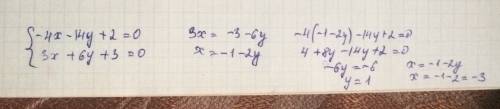 {-4x-14y+2=0
3x+6y+3=0
3x=-3-6y
x=-1-2y
-4(-1-2y)-14y+2=0
4+8y-14y+2=0
-6y=-6
y=1
x=-1-2y
x=-1-2=-3